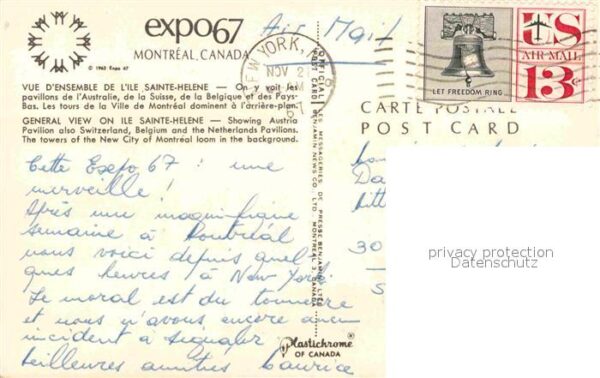 expo67
MONTRÉAL, CANADA
© 1963 Expo 67
Air Mail
NEW YORK, N.Y.
NOV 2
LET FREEDOM RING
US
AIR MAIL
13¢
VUE D'ENSEMBLE DE L'ILE SAINTE-HELENE — On y voit les
pavillons de l'Australie, de la Suisse, de la Belgique et des Pays-
Bas. Les tours de la Ville de Montréal dominent à l'arrière-plan.
GENERAL VIEW ON ILE SAINTE-HELENE — Showing Austria
Pavilion also Switzerland, Belgium and the Netherlands Pavilions.
The towers of the New City of Montréal loom in the background.
CARTE POSTALE
POST CARD
Cette Expo 67 : une
merveille !
Après une magnifique
semaine à Montréal
nous voici depuis quel
ques heures à New York
Le moral est du tonnerre
et nous n'avons encore aucun
incident à signaler
Meilleures amitiés Maurice
LES MESSAGERIES DE PRESSE BENJAMIN LTEE
BENJAMIN NEWS CO. LTD. MONTREAL 3, CANADA
Plastichrome®
OF CANADA
30
privacy protection
Datenschutz